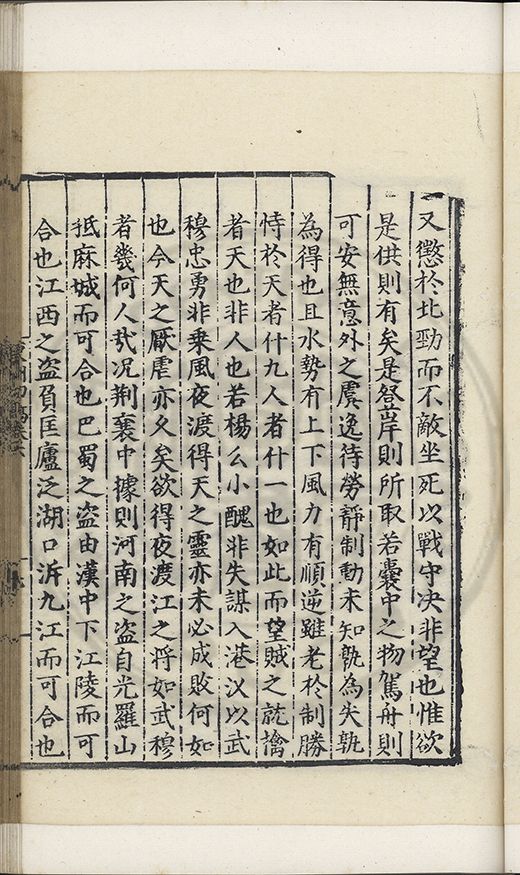 又懲於北勁而不敵坐死以戰守决非望也惟欲
是供則有矣是登岸則所取若囊中之物駕舟則
可安無意外之虞逸待勞靜制動未知孰為失孰
為得也且水勢有上下風力有順逆雖老於制勝
恃於天者什九人者什一也如此而望賊之就擒
者天也非人也若楊么小醜非失謀入港汊以武
穆忠勇非乗風夜渡得天之靈亦未必成敗何如
也今天之厭虐亦久矣欲得夜渡江之將如武穆
者幾何人㢤况荆襄中據則河南之盗自光羅山
抵麻城而可合也巴蜀之盗由漢中下江陵而可
合也江西之盗負匡廬泛湖口泝九江而可合也